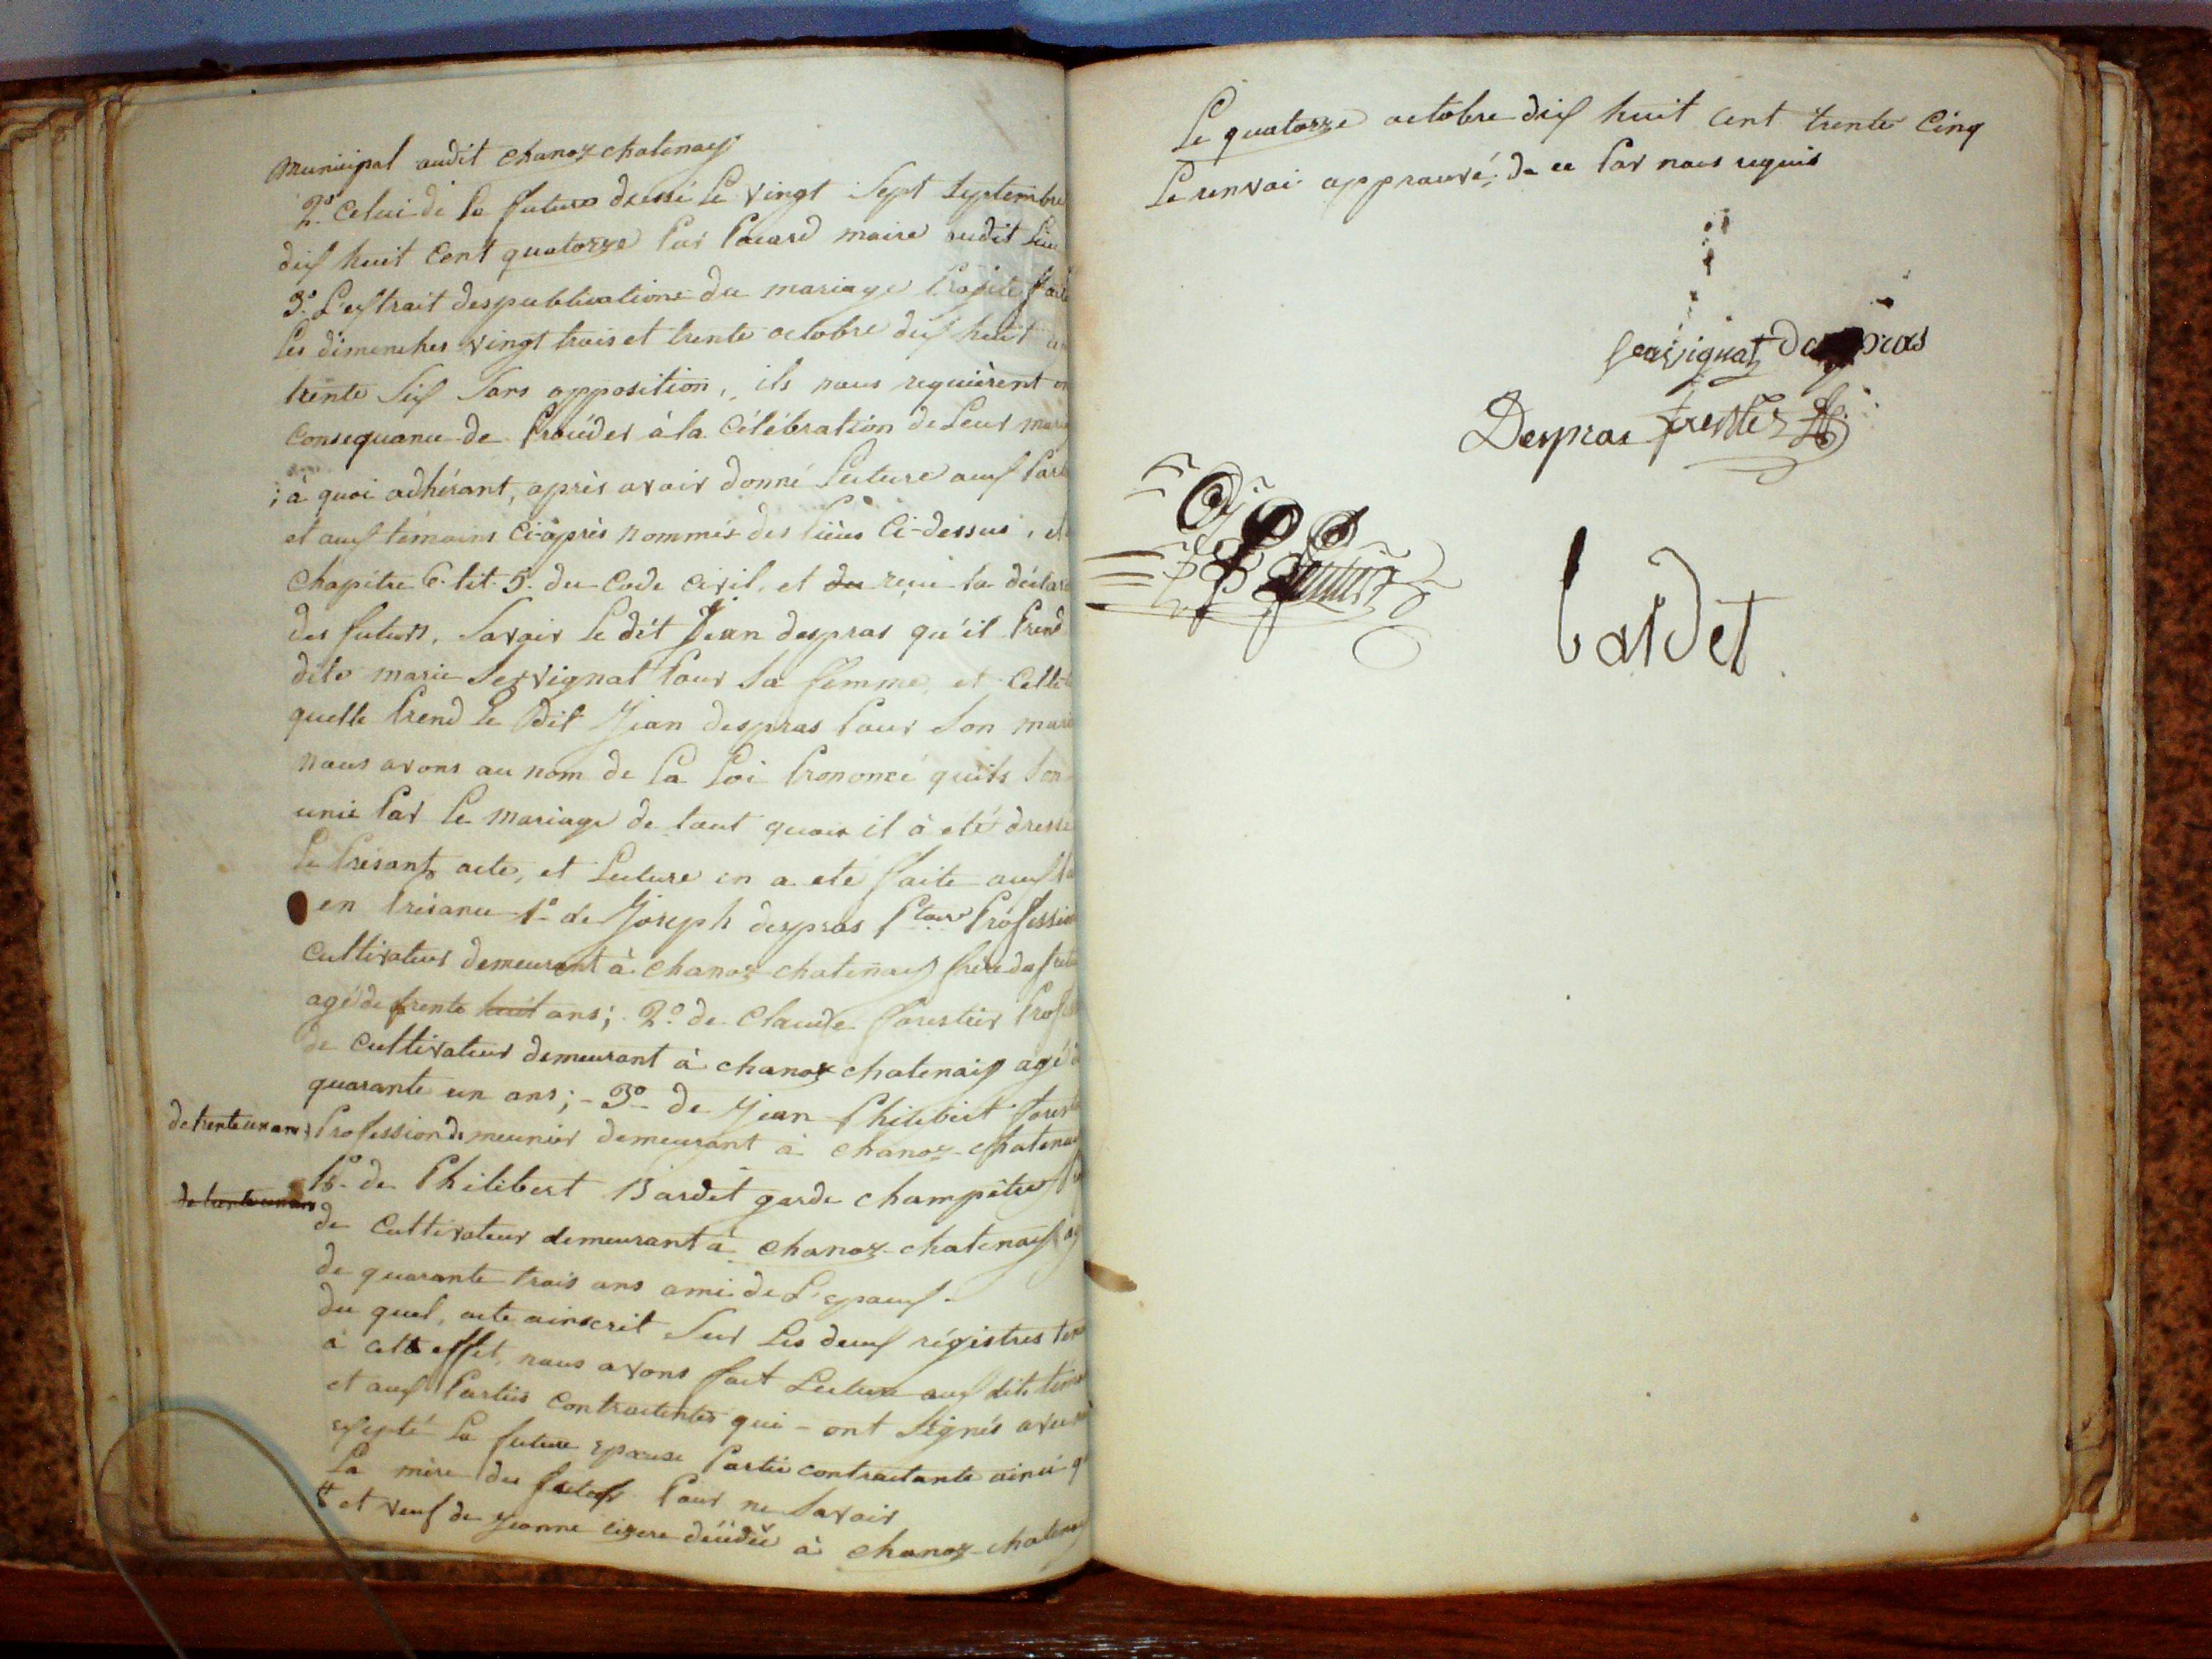 municipal audit chanoz chatenay
2º Celui de la future dressé le vingt sept septembre
dix huit cent quatorze par maire audit lieu
3º L'extrait des publications du mariage projeté
les dimenches vingt trois et trente octobre dix huit
trente six sans opposition, ils nous requièrent
consequance de procéder à la célébration de leur
; à quoi adhérant, après avoir donné lecture aux
et aux témoins ci-après nommés des pièces ci-dessus, et
chapitre 6. tit. 5. du code civil, et du reçu la
des futurs, Savoir le dit Jean despras qu'il prend
dite marie Servignat pour sa femme, et celle
quelle prend le dit Jean despras pour son mari
nous avons au nom de la loi prononcé quils
unie par le mariage de tout quoi il à été dressé
le présant acte, et lecture en a été faite aux
en présance 1º de Joseph despras
cultivateur demeurant à chanoz chatenay frère du
agé de trente huit ans; 2º de Claude forestier
de cultivateur demeurant à chanoz chatenay agé
quarante un ans; - 3º de Jean Philibert
de trente un ans
Profession de meunier demeurant à chanoz-chatenay
de trente un ans
de Philibert Bardet garde champêtre
de cultivateur demeurant à chanoz-chatenay
de quarante trois ans ami de l'epoux.
du quel, acte ainscrit sur les deux régistres
à cett effet, nous avons fait lecture aux dits
et aux parties contractentes qui - ont signés
exepté la future epouse partie contractante ainsi
la mère du pour ne savoir
et veuf de Jeanne décédée à chanoz-chatenay
Le quatorze octobre dix huit cent trente cinq
le renvoi approuvé; de ce par nous requis
Servignat
Despras
bardet